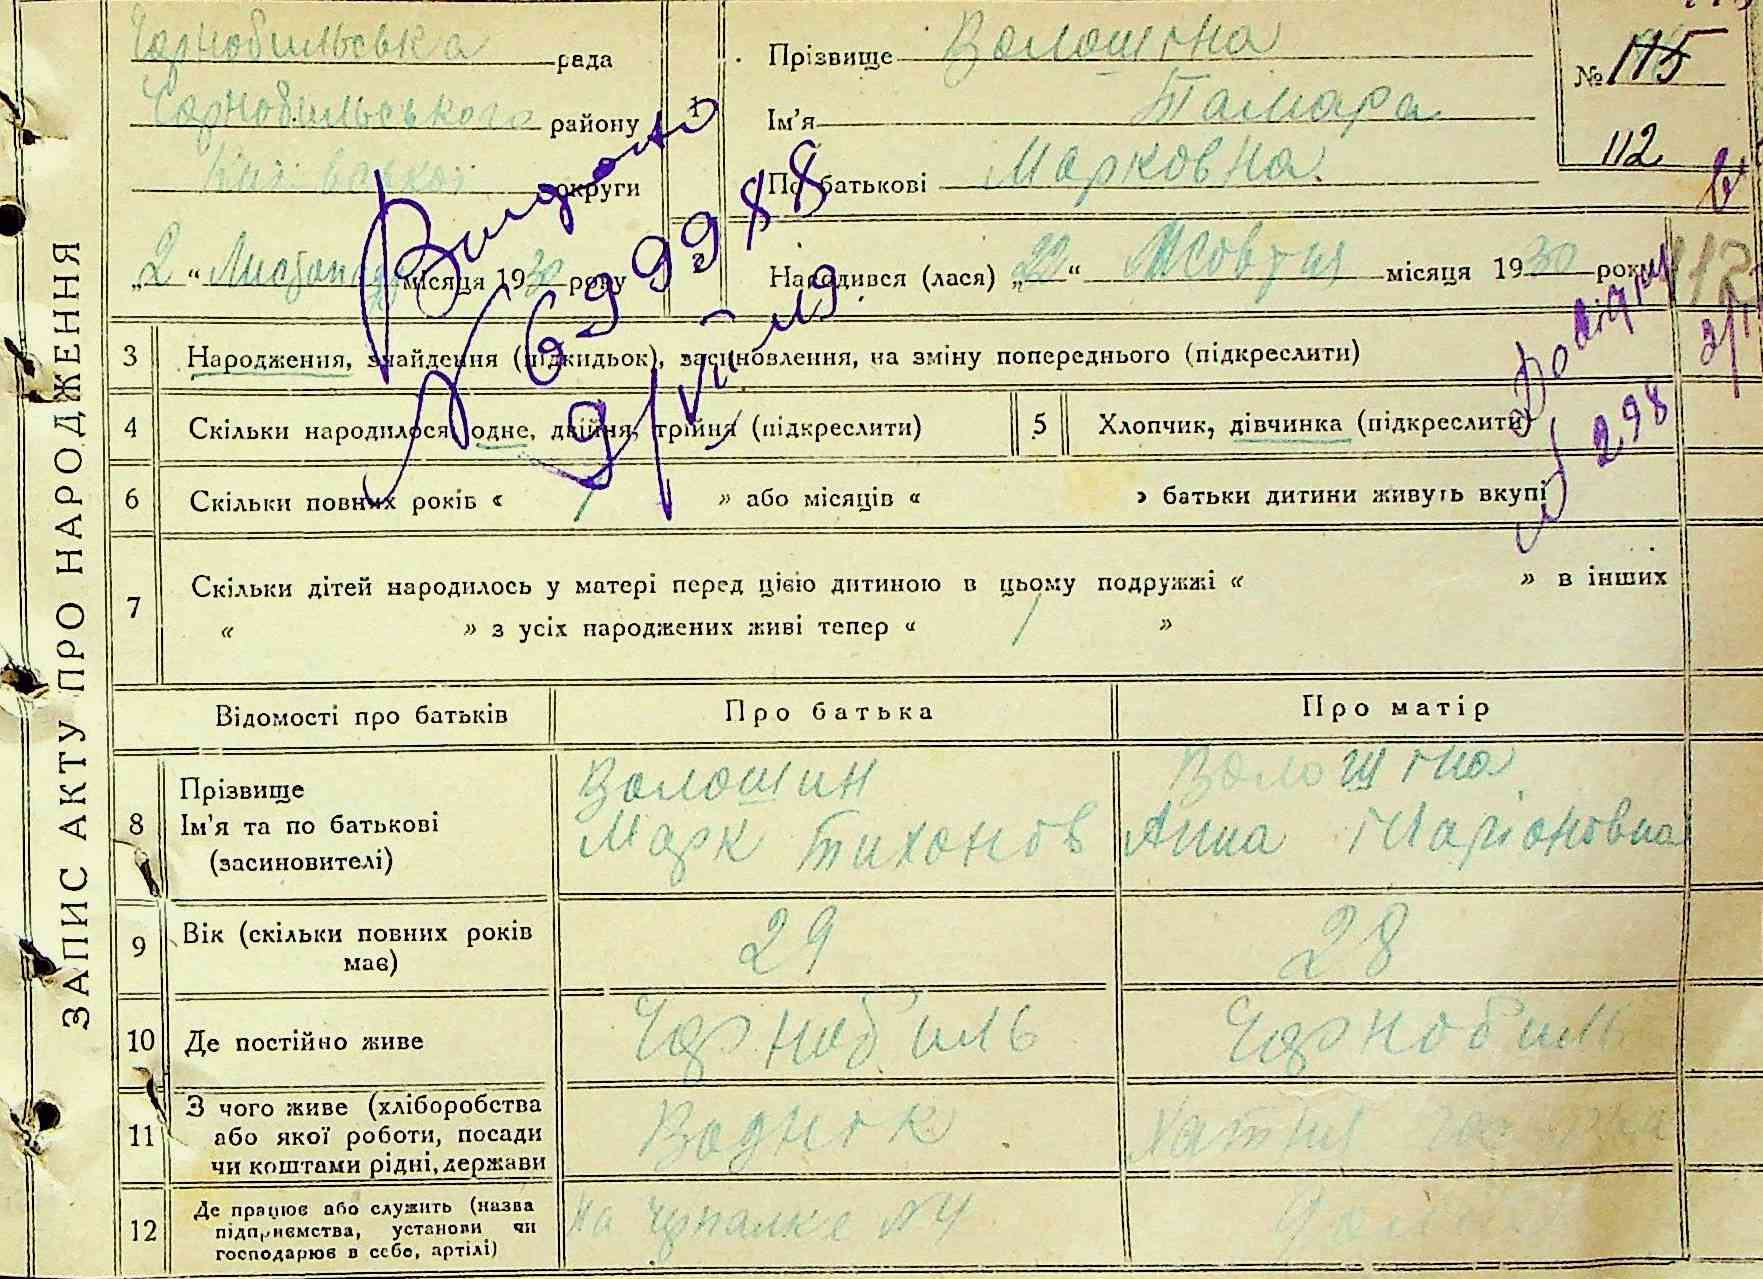 ЗАПИС АКТУ ПРО НАРОДЖЕННЯ
Чорнобильська рада
Чорнобильського району
округи
„2“ Листопада місяця 1930 року
1
Прізвище Волошіна
Ім'я Тамара
По батькові Марковна
№ 115
112
Народився (лася) „22“ Жовтня місяця 1930 року
112
Видано
№ 699988
9/VII 49
№ 298
3 Народження, знайдення (підкидьок), засиновлення, на зміну попереднього (підкреслити)
4 Скільки народилося одне, двійня, трійня (підкреслити)
5 Хлопчик, дівчинка (підкреслити)
6 Скільки повних років « / » або місяців « » батьки дитини живуть вкупі
7 Скільки дітей народилось у матері перед цією дитиною в цьому подружжі « » в інших
« » з усіх народжених живі тепер « / »
Відомості про батьків Про батька Про матір
8 Прізвище Волошин Волошіна
Ім'я та по батькові Марк Тихонов Анна Ілларіоновна
(засиновителі)
9 Вік (скільки повних років має) 29 28
10 Де постійно живе Чорнобиль Чорнобиль
11 З чого живе (хліборобства
або якої роботи, посади
чи коштами рідні, держави
Воднік Хатня
12 Де працює або служить (назва
підприємства, установи чи
господарює в себе, артілі)
На №4